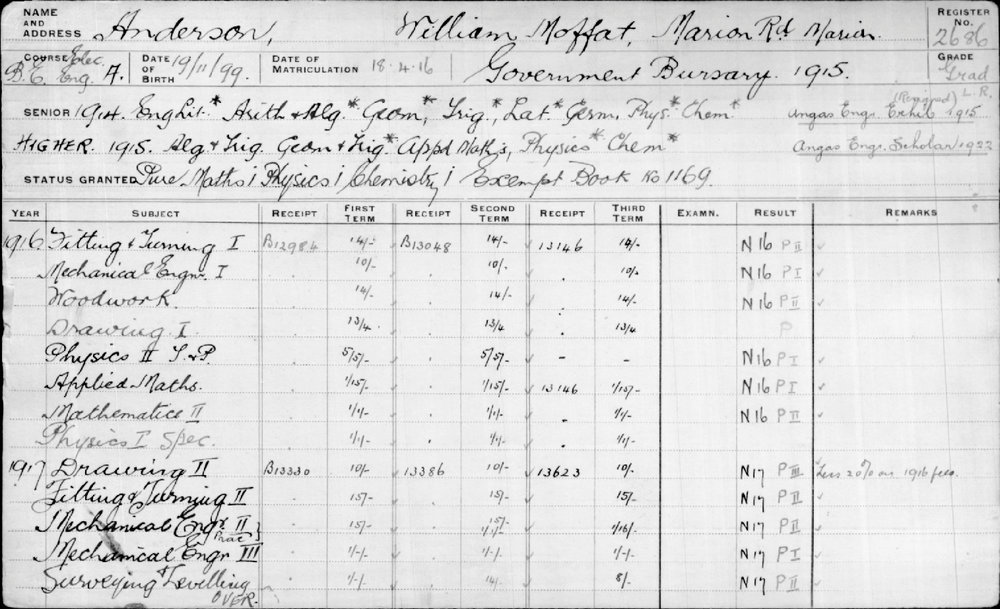 NAME AND ADDRESS Anderson, William Moffat, Marion Rd. Marion. REGISTER No. 2686
COURSE B.E. Elec. Eng. A. DATE OF BIRTH 19/11/99. DATE OF MATRICULATION 18.4.16 Government Bursary. 1915. GRADE Grad
SENIOR 1914. Eng Lit.* Arith & Alg.* Geom, Trig., Lat.* Germ, Phys.* Chem* Angas Engr. Exhib (Resigned) L.R. 1915
HIGHER. 1915. Alg & Trig. Geom & Trig.* Appd Maths, Physics* Chem* Angas Engr. Scholar 1922
STATUS GRANTED Pure Maths I Physics I Chemistry I Exempt Book No 1169.
YEAR SUBJECT RECEIPT FIRST TERM RECEIPT SECOND TERM RECEIPT THIRD TERM EXAMN. RESULT REMARKS
1916 Fitting & Turning I B12984 14/- B13048 14/- 13146 14/- N16 P II
Mechanical Engr. I 10/- 10/- 10/- N16 P I
Woodwork. 14/- 14/- 14/- N16 P II
Drawing I. 13/4 13/4 13/4 P
Physics II T.&P. 5/5/- 5/5/- - - N16 P I
Applied Maths. 1/15/- 1/15/- 13146 1/15/- N16 P I
Mathematics II 1/1/- 1/1/- 1/1/- N16 P II
Physics I Spec. 1/1/- 1/1/- 1/1/-
1917 Drawing II B13330 10/- 13386 10/- 13623 10/- N17 P III Less 20% on 1916 fees.
Fitting & Turning II 15/- 15/- 15/- N17 P II
Mechanical Engr. II Prac 15/- 15/- 1/1/- 1/16/- N17 P II
Mechanical Engr III 1/-/- 1/-/- 1/-/- N17 P I
Surveying & Levelling 1/-/- 14/- 8/- N17 P II
OVER.